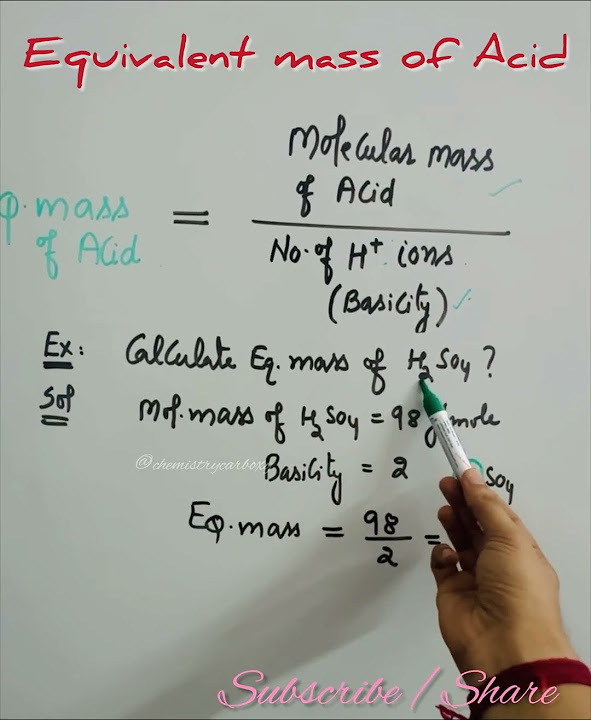 Equivalent mass of Acid
Molecular mass
of Acid
q. mass
of Acid
=
No. of H+ ions
(Basicity)
Ex: Calculate Eq. mass of H2So4?
Sol
Mol. mass of H2So4 = 98 g/mole
@chemistrycarbox
Basicity = 2
So4
Eq. mass = 98/2 =
Subscribe / Share